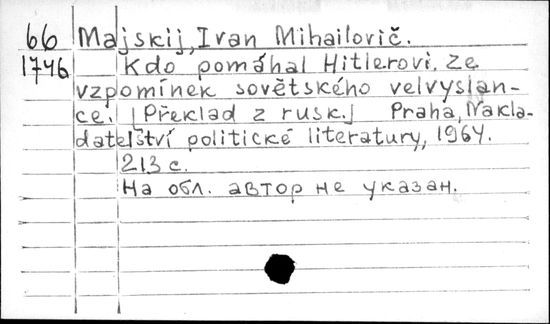 66 Majskij, Ivan Mihailovič.
1746 Kdo pomáhal Hitlerovi. Ze
vzpomínek sovětského velvyslan-
ce. [Překlad z rusk.] Praha, Nakla-
datelství politické literatury, 1964.
213 с.
На обл. автор не указан.